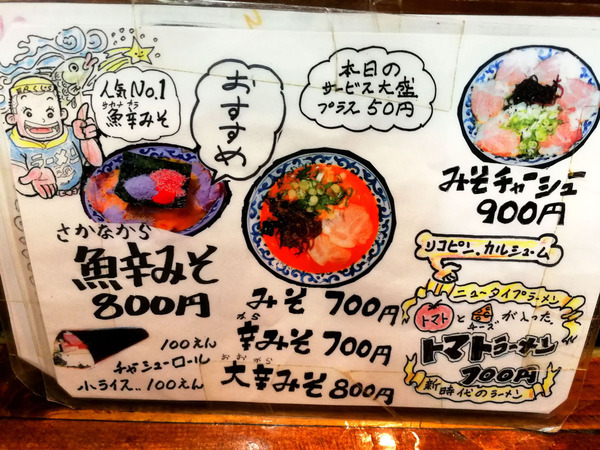 人気No.1
サカナカラ
魚辛みそ
おすすめ
本日の
サービス大盛
プラス50円
みそチャーシュー
900円
さかなから
魚辛みそ
800円
みそ 700円
から
辛みそ 700円
おおから
大辛みそ 800円
100えん
チャシューロール
小ライス..100えん
リコピン、カルシューム
ニュータイプラーメン
トマトとチーズが入った
トマトラーメン
700円
新時代のラーメン